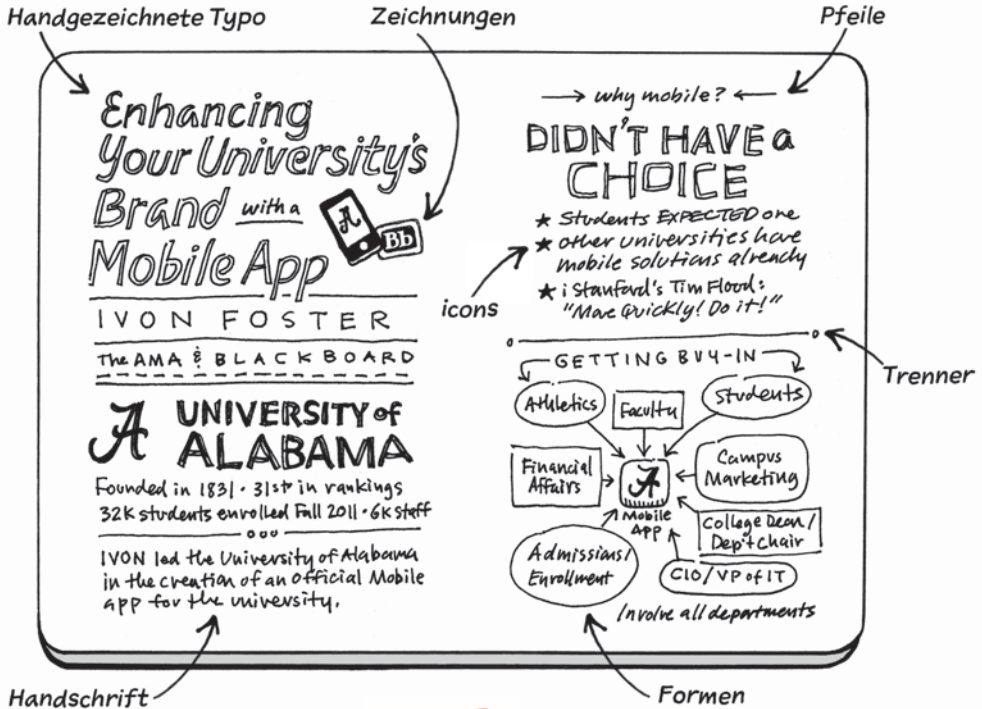 Handgezeichnete Typo
Zeichnungen
Pfeile
Enhancing
Your University's
Brand with a
Mobile App
A
Bb
IVON FOSTER
The AMA & BLACKBOARD
A UNIVERSITY of
ALABAMA
Founded in 1831 · 31st in rankings
32K students enrolled Fall 2011 · 6K staff
IVON led the University of Alabama
in the creation of an official Mobile
app for the university.
Handschrift
→ why mobile? ←
DIDN'T HAVE a
CHOICE
★ Students EXPECTED one
★ other universities have
mobile solutions already
★ i Stanford's Tim Flood:
"Move Quickly! Do it!"
icons
Trenner
GETTING BUY-IN
Athletics
Faculty
Students
Financial
Affairs
A
Mobile
App
Campus
Marketing
College Dean/
Dep't Chair
Admissions/
Enrollment
CIO/VP of IT
Involve all departments
Formen